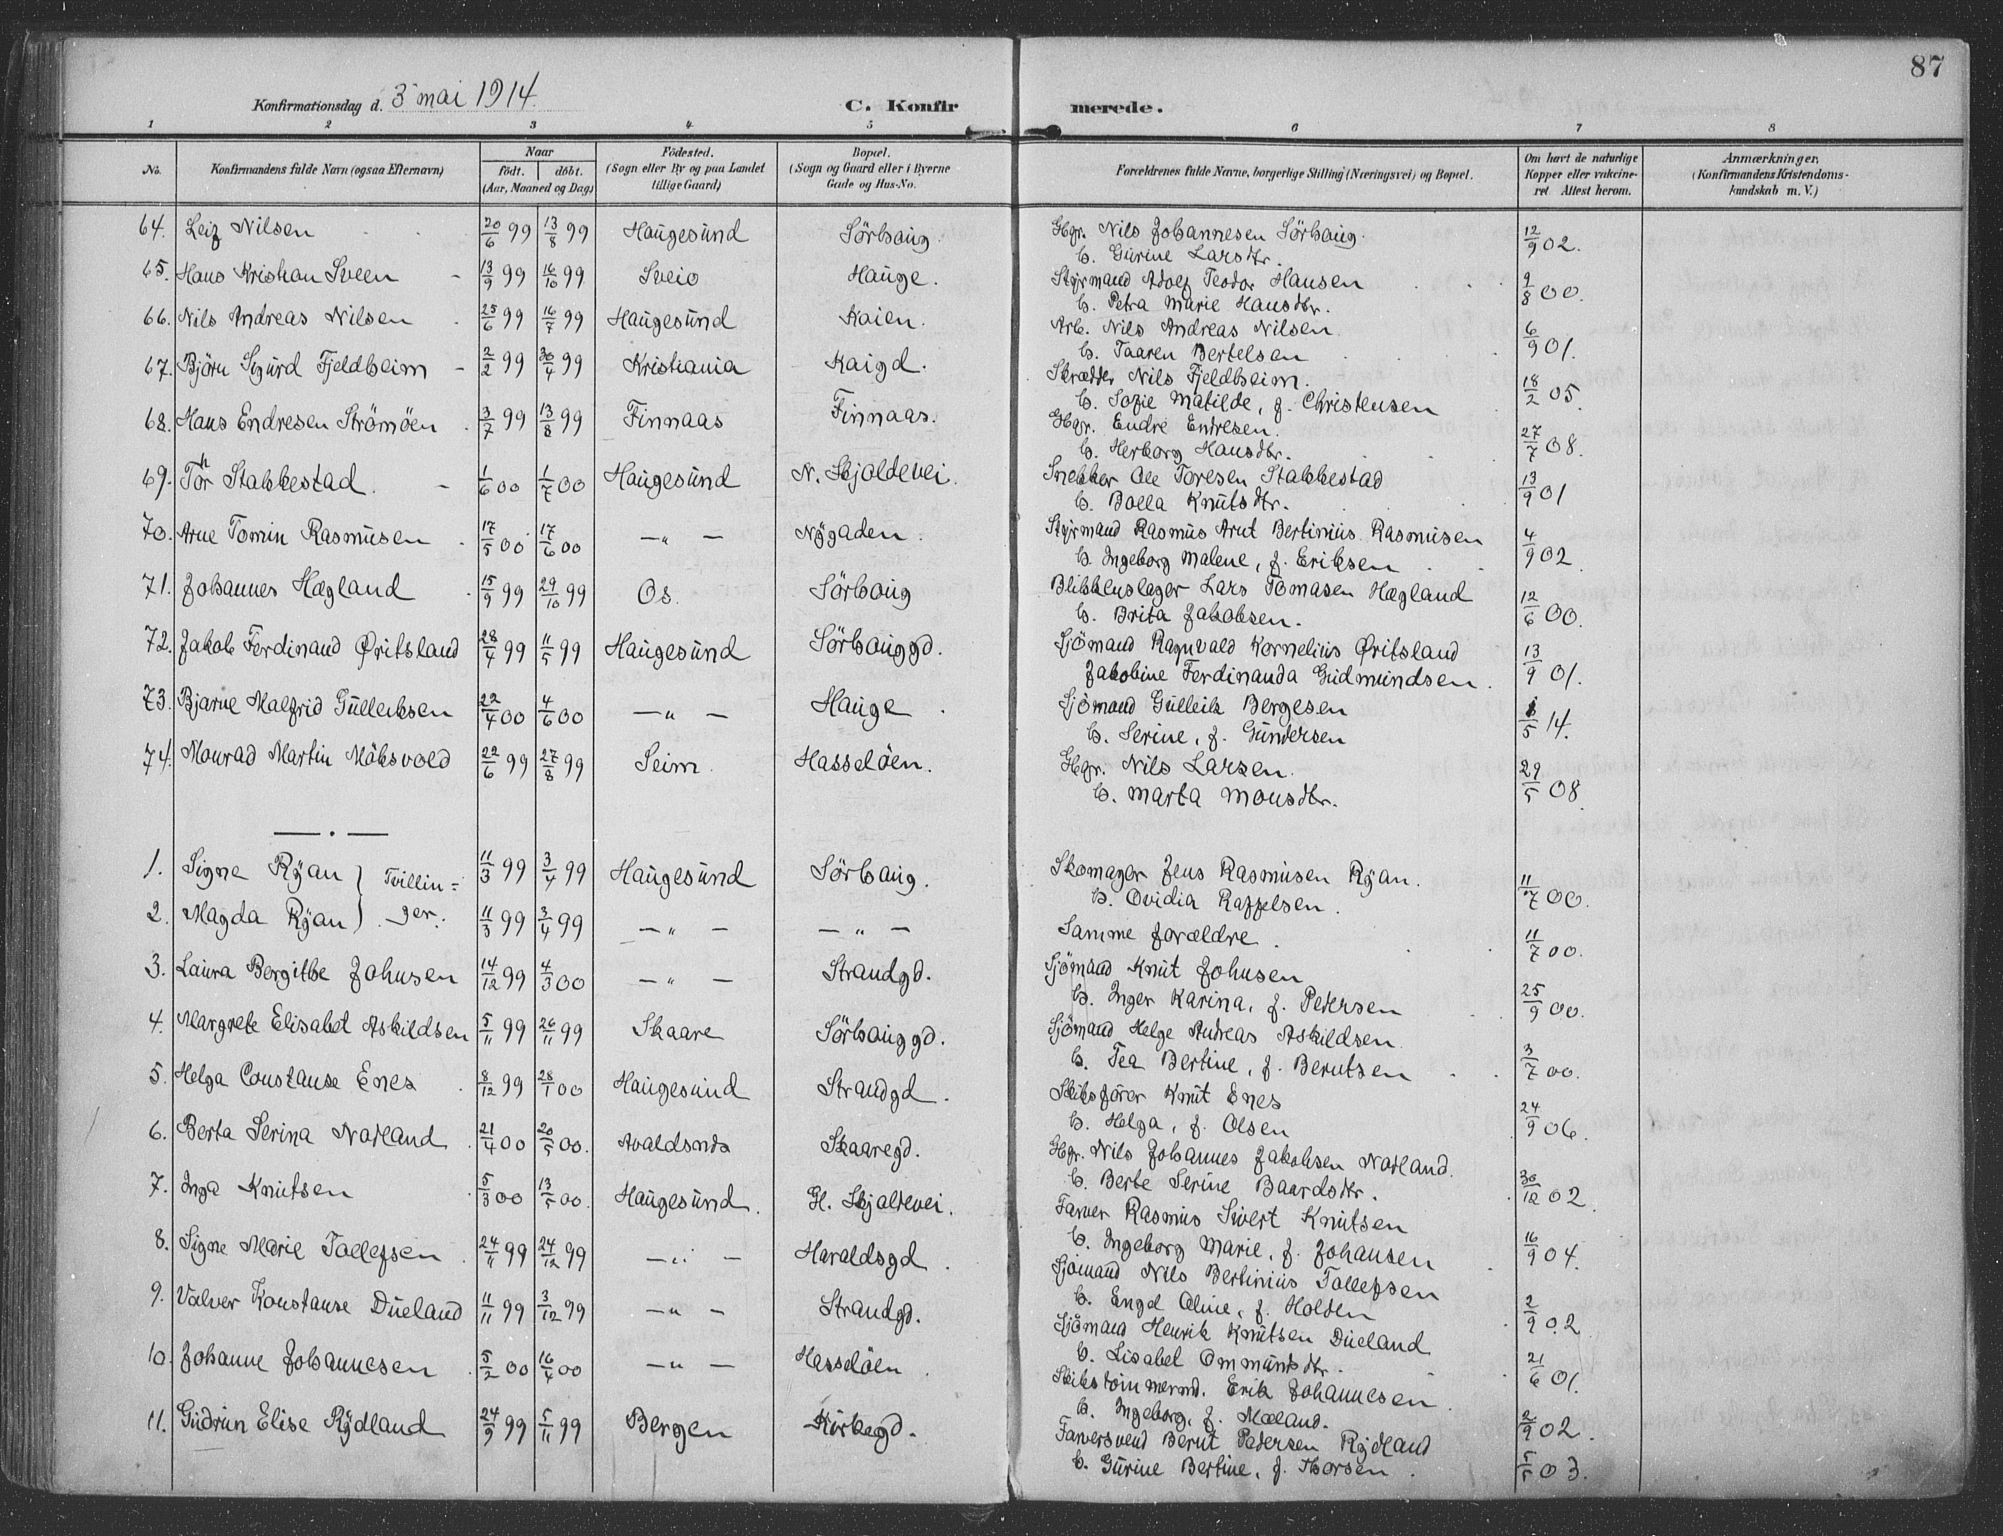 87
Konfirmationsdag d. 3 mai 1914.
C. Konfirmerede.
1 2 3 4 5 6 7 8
No. Konfirmandens fulde Navn (ogsaa Efternavn) Naar født. døbt. (Aar, Maaned og Dag) Fødested. (Sogn eller By og paa Landet tillige Gaard) Bopæl. (Sogn og Gaard eller i Byerne Gade og Hus-No. Forældrenes fulde Navne, borgerlige Stilling (Næringsvei) og Bopæl. Om havt de naturlige Kopper eller vakcineret. Attest herom. Anmærkninger, (Konfirmandens Kristendomskundskab m. V.)
64. Leif Nilsen 20/6 99 13/8 99 Haugesund Sörhaug. Hgr. Nils Johannesen Sörhaug. 12/9 02.
C. Gurine Larsdtr.
65. Hans Kristian Sveen 13/9 99 16/10 99 Sveio Hauge. Styrmand Adolf Teodor Hansen 9/8 00.
C. Petra Marie Hansdtr.
66. Nils Andreas Nilsen 25/6 99 16/7 99 Haugesund Kaien. Arb. Nils Andreas Nilsen 6/9 01.
C. Taaren Bertelsen
67. Björn Sigurd Fjeldheim 2/2 99 30/4 99 Kristiania Kaigd. Skrædder Nils Fjeldheim. 18/2 05.
C. Sofie Matilde, f. Christensen
68. Hans Endresen Strömöen 3/7 99 13/8 99 Finnaas Finnaas. Hgr. Endre Endresen. 27/7 08.
C. Herborg Hansdtr.
69. Tor Stakkestad. 1/6 00 1/7 00 Haugesund N. Skjoldevei. Snekker Ole Toresen Stakkestad 13/9 01
C. Bolla Knutsdtr.
70. Arne Tomin Rasmusen 17/5 00 17/6 00 — " — Nygaden. Styrmand Rasmus Arut Bertinius Rasmusen 4/9 02
C. Ingeborg Malene, f. Eriksen
71. Johannes Hægland 15/9 99 29/10 99 Os. Sörhaug Blikkenslager Lars Tomasen Hægland 12/6 00.
C. Brita Jakobsen.
72. Jakob Ferdinand Øritsland 28/4 99 11/5 99 Haugesund Sörhauggd. Sjömand Ragnvald Kornelius Øritsland 13/9 01.
Jakobine Ferdinanda Gudmundsen.
73. Bjarne Malfrid Gulleiksen 22/4 00 4/6 00 — " — Hauge. Sjömand Gulleik Bergesen /5 14.
C. Serine, f. Gundersen
74. Monrad Martin Möksvold 22/6 99 27/8 99 Seim. Hasselöen. Hgr. Nils Larsen. 29/5 08
C. Marta Monsdtr.
1. Signe Ryan } Tvillin= 11/3 99 3/4 99 Haugesund Sörhaug. Skomager Jens Rasmusen Ryan. 11/7 00.
C. Ovidia Raffelsen.
2. Magda Ryan } ger. 11/3 99 3/4 99 — " — — " — Samme forældre. 11/7 00.
3. Laura Bergitke Johnsen 14/12 99 4/3 00 — " — Strandgd. Sjömand Knut Johnsen 25/9 00.
C. Inger Karina, f. Pedersen
4. Margrete Elisabet Askildsen 5/11 99 26/11 99 Skaare Sörhauggd. Sjömand Helge Andreas Askildsen. 3/7 00.
C. Tea Bertine, f. Berntsen
5. Helga Constanse Enes 8/12 99 28/1 00 Haugesund Strandgd. Skibsfører Knut Enes 24/9 06.
C. Helga, f. Olsen
6. Berta Serina Natland 21/4 00 20/5 00. Avaldsnes Skaaregd. Hgr. Nils Johannes Jakobsen Natland. 30/12 02.
C. Berte Serine Baardsdtr.
7. Inga Knutsen 5/3 00 13/5 00. Haugesund. Gl. Skjoldevei. Farver Rasmus Sivert Knutsen 16/9 04.
C. Ingeborg Marie, f. Johansen
8. Signe Marie Tollefsen 24/11 99 24/12 99 — " — Haraldsgd. Sjömand Nils Bertinius Tollefsen 2/9 02
C. Engel Oline, f. Holden
9. Valver Konstanse Dueland 11/11 99 3/12 99 — " — Strandgd. Sjömand Henrik Knutsen Dueland 21/6 01.
C. Lisabet Ommundsdtr.
10. Johanne Johannesen 5/2 00 16/4 00 — " — Hasselöen. Skibstömmermd. Erik Johannesen. 2/9 02.
C. Ingeborg, f. Mæland.
11. Gudrun Elise Rydland 24/9 99 5/11 99 Bergen Kirkegd. Farversvend Bernt Pedersen Rydland 5/5 03.
C. Gurine Bertine, f. Thorsen.